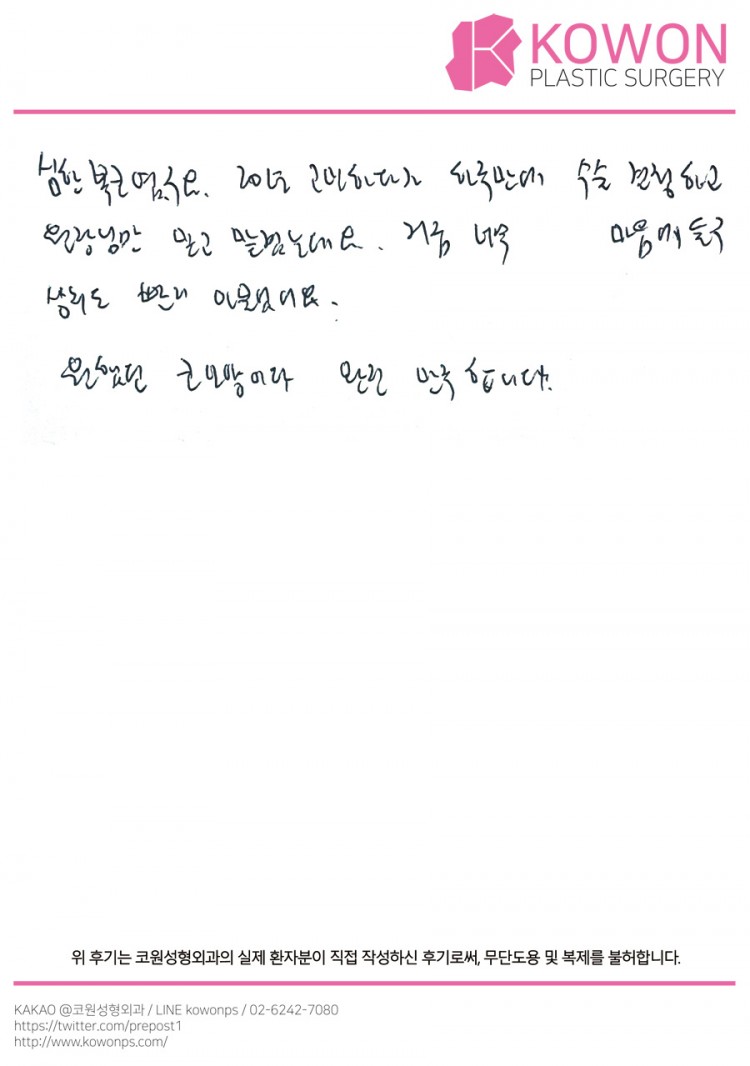 KOWON
PLASTIC SURGERY
심한 복코였구요. 20년 고민하다가 하루만에 수술 결정하고
원장님만 믿고 맡겼는데요. 지금 너무 마음에 들구
상처도 빨리 아물었어요.
원했던 코모양이라 완전 만족합니다.
위 후기는 코원성형외과의 실제 환자분이 직접 작성하신 후기로써, 무단도용 및 복제를 불허합니다.
KAKAO @코원성형외과 / LINE kowonps / 02-6242-7080
https://twitter.com/prepost1
http://www.kowonps.com/